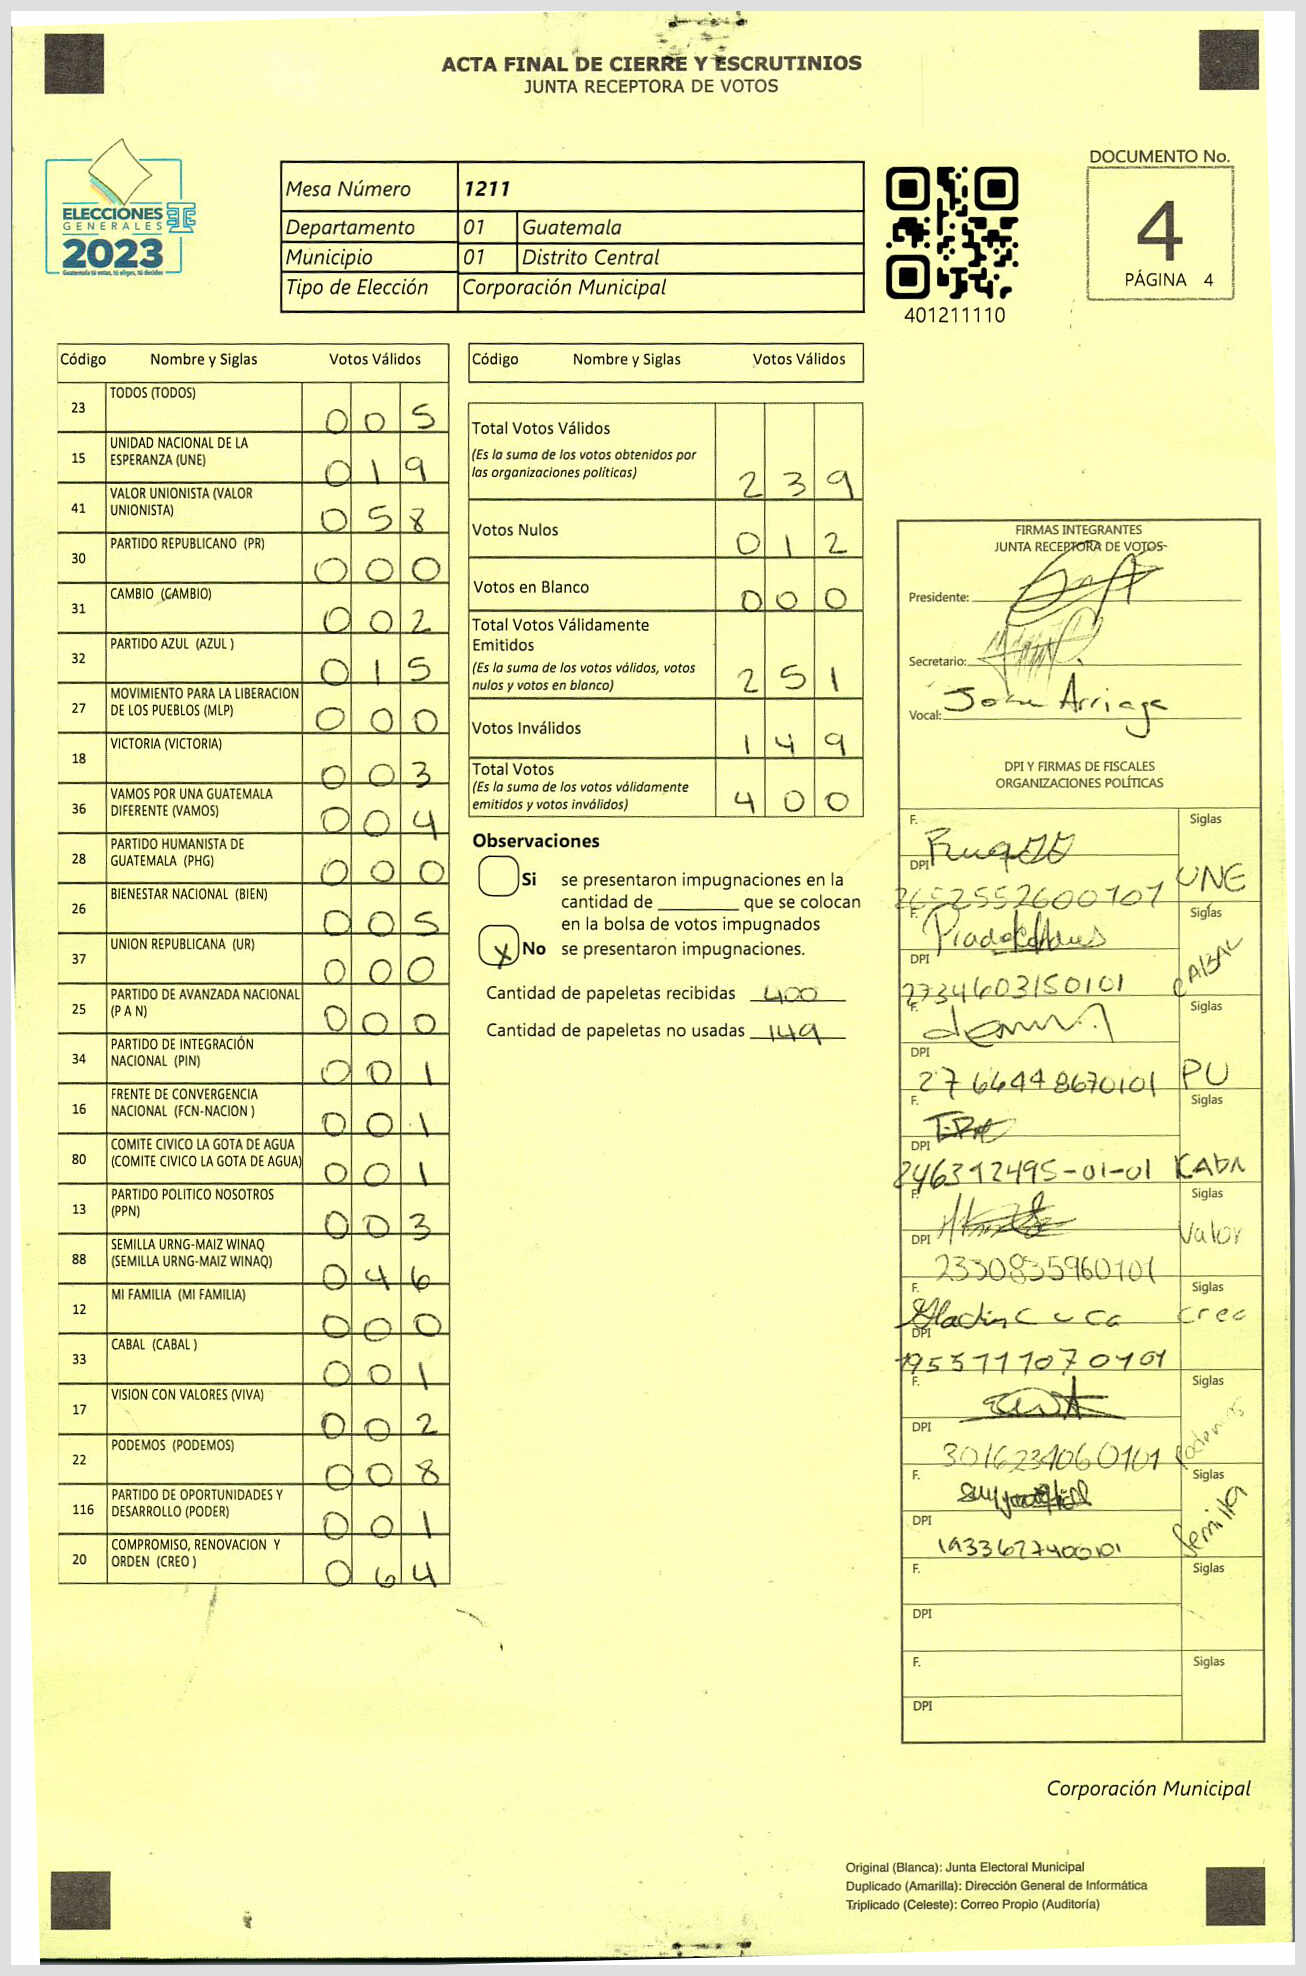 ACTA FINAL DE CIERRE Y ESCRUTINIOS
JUNTA RECEPTORA DE VOTOS
ELECCIONES
GENERALES
2023
Guatemala tú votas, tú eliges, tú decides
Mesa Número 1211
Departamento 01 Guatemala
Municipio 01 Distrito Central
Tipo de Elección Corporación Municipal
401211110
DOCUMENTO No.
4
PÁGINA 4
Código Nombre y Siglas Votos Válidos
23 TODOS (TODOS) 0 0 5
15 UNIDAD NACIONAL DE LA
ESPERANZA (UNE) 0 1 9
41 VALOR UNIONISTA (VALOR
UNIONISTA) 0 5 8
30 PARTIDO REPUBLICANO (PR) 0 0 0
31 CAMBIO (CAMBIO) 0 0 2
32 PARTIDO AZUL (AZUL ) 0 1 5
27 MOVIMIENTO PARA LA LIBERACION
DE LOS PUEBLOS (MLP) 0 0 0
18 VICTORIA (VICTORIA) 0 0 3
36 VAMOS POR UNA GUATEMALA
DIFERENTE (VAMOS) 0 0 4
28 PARTIDO HUMANISTA DE
GUATEMALA (PHG) 0 0 0
26 BIENESTAR NACIONAL (BIEN) 0 0 5
37 UNION REPUBLICANA (UR) 0 0 0
25 PARTIDO DE AVANZADA NACIONAL
(P A N) 0 0 0
34 PARTIDO DE INTEGRACIÓN
NACIONAL (PIN) 0 0 1
16 FRENTE DE CONVERGENCIA
NACIONAL (FCN-NACION ) 0 0 1
80 COMITE CIVICO LA GOTA DE AGUA
(COMITE CIVICO LA GOTA DE AGUA) 0 0 1
13 PARTIDO POLITICO NOSOTROS
(PPN) 0 0 3
88 SEMILLA URNG-MAIZ WINAQ
(SEMILLA URNG-MAIZ WINAQ) 0 4 6
12 MI FAMILIA (MI FAMILIA) 0 0 0
33 CABAL (CABAL ) 0 0 1
17 VISION CON VALORES (VIVA) 0 0 2
22 PODEMOS (PODEMOS) 0 0 8
116 PARTIDO DE OPORTUNIDADES Y
DESARROLLO (PODER) 0 0 1
20 COMPROMISO, RENOVACION Y
ORDEN (CREO ) 0 6 4
Código Nombre y Siglas Votos Válidos
Total Votos Válidos
(Es la suma de los votos obtenidos por
las organizaciones políticas) 2 3 9
Votos Nulos 0 1 2
Votos en Blanco 0 0 0
Total Votos Válidamente
Emitidos
(Es la suma de los votos válidos, votos
nulos y votos en blanco) 2 5 1
Votos Inválidos 1 4 9
Total Votos
(Es la suma de los votos válidamente
emitidos y votos inválidos) 4 0 0
Observaciones
Si se presentaron impugnaciones en la
cantidad de ________ que se colocan
en la bolsa de votos impugnados
X No se presentaron impugnaciones.
Cantidad de papeletas recibidas 400
Cantidad de papeletas no usadas 149
FIRMAS INTEGRANTES
JUNTA RECEPTORA DE VOTOS
Presidente:
Secretario:
Vocal: Arriaga
DPI Y FIRMAS DE FISCALES
ORGANIZACIONES POLÍTICAS
F. Siglas
DPI UNE
2652552600101
F. Siglas
DPI CABAL
2734603150101
F. Siglas
DPI
2766448670101 PU
F. Siglas
DPI
F. Siglas
DPI Valor
2330835960101
F. Siglas
Creo
DPI
F. Siglas
DPI Podemos
3016234060101
F. Siglas
DPI Semilla
1933677400101
F. Siglas
DPI
F. Siglas
DPI
Corporación Municipal
Original (Blanca): Junta Electoral Municipal
Duplicado (Amarilla): Dirección General de Informática
Triplicado (Celeste): Correo Propio (Auditoría)